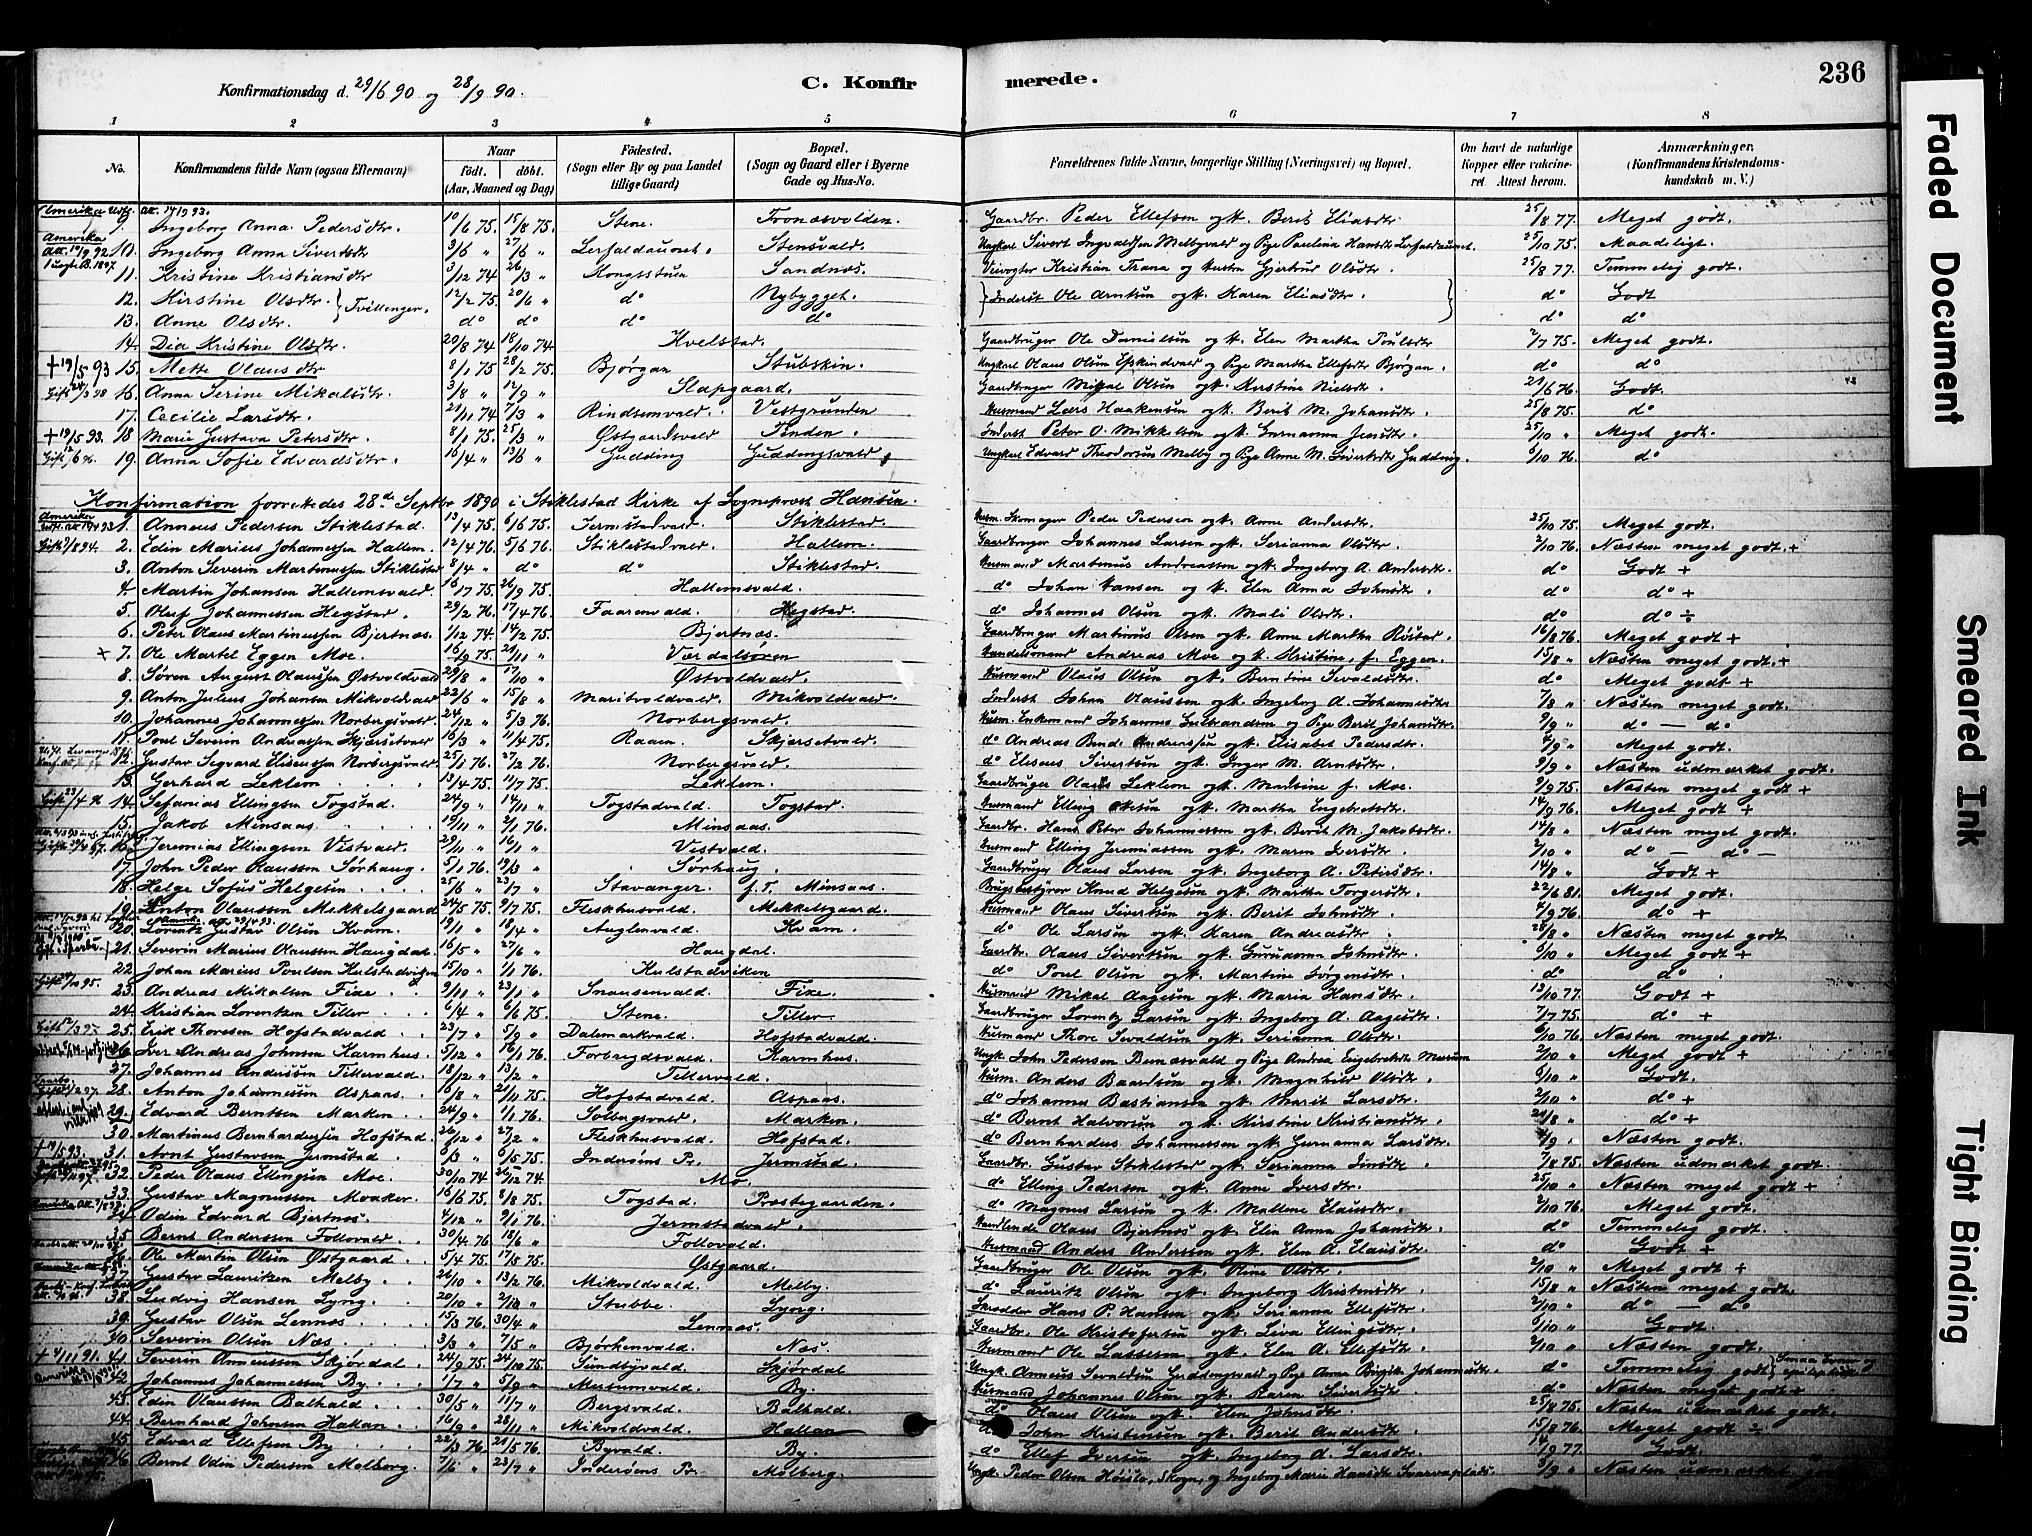 Konfirmationsdag d. 29/6 90 og 28/9 90.
C. Konfirmerede.
236
1 2 3 4 5 6 7 8
No.
Konfirmandens fulde Navn (ogsaa Efternavn)
Naar födt. döbt. (Aar, Maaned og Dag)
Födested. (Sogn eller By og paa Landet tillige Gaard)
Bopæl. (Sogn og Gaard eller i Byerne Gade og Hus-No.
Forældrenes fulde Navne, borgerlige Stilling (Næringsvei) og Bopæl.
Om havt de naturlige Kopper eller vakcineret. Attest herom.
Anmærkninger. (Konfirmandens Kristendomskundskab m. V.)
9. Ingeborg Anna Pedersdtr. 10/6 75. 15/8 75. Stene. Tronæsvolden. Gaardbr. Peder Ellefsen og k. Berit Eliasdtr. 25/8 77. Meget godt.
10. Ingeborg Anna Sivertsdtr 3/6 " 27/6 " Lerfaldaunet. Stensvald. Ungkarl Sivert Ingvaldsen Melbyvald og Pige Paulina Hansdtr Lerfaldaunet. 25/10 75. Maadeligt.
11. Kristine Kristiansdtr 5/12 74 26/3 " Kongsstuen Sandnæs. Veivogter Kristian Trana og Hustru Gjertrud Olsdtr. 25/8 77. Temmelig godt.
12. Kirstine Olsdtr. } Tvillinger. 12/2 75. 20/6 " do Nybygget. Inderst Ole Arntsen og k. Karen Eliasdtr. do Godt
13. Anne Olsdtr. do do do do do do
14. Dea Kristine Olsdtr 20/8 74 18/10 74. Kvelstad. Gaardbruger Ole Danielsen og k. Elen Martha Poulsdtr 2/7 75. Meget godt.
+ 19/5 93 15. Mette Olausdtr 8/1 75. 28/2 75. Bjørgan Stubskin. Ungkarl Olaus Olsen Eskindvald og Pige Martha Ellefsdtr Bjørgan. do do
16. Anna Serine Mikalsdtr 3/8 " 12/9 " Slapgaard. Gaardbruger Mikal Olsen og k. Kirstine Nielsdtr. 21/6 76. Godt.
17. Cecilie Larsdtr. 21/11 74 7/3 " Rindsemvald. Vestgrunden Husmand Lars Haakensen og k. Berit M. Johansdtr. 25/8 75. do
+ 19/5 93. 18 Marie Gustava Petersdtr. 8/1 75. 25/3 " Østgaardsvald Tinden. Inderst Peter O. Mikkelsen og k. Gurianna Jensdtr. 25/10 " Meget godt.
19. Anna Sofie Edvardsdtr. 16/4 " 13/6 " Gudding Guddingsvald. Ungkarl Edvard Theodorsen Melby og Pige Anne M. Sivertsdtr Gudding. 6/10 76. do
Konfirmation forrettedes 28de Septbr 1890 i Stiklestad Kirke af Sogneprest Hansen.
1. Anneus Pedersen Stiklestad. 13/4 75. 6/6 75. Jermstadvald. Stiklestad. Husm. Skomager Peder Pedersen og k. Anne Andersdtr. 25/10 75. Meget godt.
2. Edin Marius Johannessen Hallem. 12/4 76. 5/6 76. Stiklestadvald. Hallem. Gaardbruger Johannes Larsen og k. Serianna Olsdtr. 2/10 76. Næsten meget godt. +
3. Anton Severin Martinussen Stiklestad 8/4 " do do Stiklestad. Husmand Martinus Andreassen og k. Ingeborg A. Andersdtr. do Godt +
4. Martin Johansen Hallemsvald 16/7 75. 26/9 75. Hallemsvald. do Johan Hansen og k. Elen Anna Johnsdtr. do do +
5. Oluf Johannessen Hegstad. 29/2 76. 17/4 76. Faarenvald. Hegstad. do Johannes Olsen og k. Mali Olsdtr. do do ÷
6. Peter Olaus Martinussen Bjertnæs. 1/12 74. 14/2 75. Bjertnæs. Gaardbruger Martinus Olsen og k. Anne Martha Røstad. 16/8 76. Meget godt +
+ 7. Ole Martel Eggen Moe. 16/9 75. 21/11 " Værdalsøren Handelsmand Andreas Moe og k. Kristine, f. Eggen. 15/8 " Næsten meget godt. +
8. Søren August Olaussen Østvoldvald 29/8 " 17/10 " Østvoldvald. Husmand Olaus Olsen og k. Berntine Sevaldsdtr. do Meget godt +
9. Anton Julius Johansen Mikvoldvald 22/6 " 15/8 " Maritvoldvald Mikvoldvald Inderst Johan Olaussen og k. Ingeborg A. Johannesdtr. 7/8 " Næsten meget godt.
10. Johannes Johannessen Norbergsvald. 24/12 " 5/3 76. Norbergsvald. Husm. Enkemand Johannes Gulbrandsen og Pige Berit Johansdtr. 9/9 " do — do
11. Poul Severin Andreassen Skjærsetvald 16/3 " 11/4 75. Raaen. Skjersetvald. do Andreas Bend. Andreassen og k. Elisabet Pedersdtr. 4/9 " Meget godt.
12. Gustav Segvard Eliseussen Norbergsvald. 25/1 76. 27/2 76. Norbergsvald. do Eliseus Sivertsen og k. Inger M. Arntsdtr. 9/9 " Næsten udmærket godt.
13. Gerhard Leklem. 13/4 75. 11/7 75. Leklem. Gaardbruger Olaus Leklem og k. Marsine f. Moe. 2/9 75. Næsten meget godt +
14. Sefanias Ellingsen Togstad. 24/9 " 14/11 " Togstadvald. Togstad. Husmand Elling Olsen og k. Martha Engebretsdtr. 14/9 76. Meget godt +
15. Jakob Minsaas. 19/11 " 2/1 76. Minsaas. Gaardbr. Hans Peter Johannessen og k. Berit M. Jakobsdtr. 14/8 " Næsten meget godt.
16. Jeremias Ellingsen Vistvald. 29/11 " 16/1 " Vistvald. Husmand Elling Jeremiassen og k. Maren Iversdtr. 2/10 " do — do —
17. John Peder Olaussen Sørhaug. 5/1 76. 19/3 " Sørhaug. Gaardbruger Olaus Larsen og k. Ingeborg A. Petersdtr. 14/8 " Godt +
18. Helge Sofus Helgesen. 25/6 " 23/7 " Stavanger. f. T. Minsaas. Brugsbestyrer Knud Helgesen og k. Martha Torgersdtr. 22/6 81. Meget godt.
19. Anton Olaussen Mikkelsgaard 24/5 75. 9/7 75. Fleskhusvald. Mekkelsgaard. Husmand Olaus Sivertsen og k. Berit Johnsdtr. 4/9 76. do +
20. Lorentz Gustav Olsen Kvam. 19/1 " 18/4 " Auglenvald. Kvam. do Ole Larsen og k. Karen Andreasdtr. 28/8 " Næsten meget godt
21. Severin Marius Olaussen Haugdal. 16/5 " 27/6 " Haugdal. Gaardbr. Olaus Sivertsen og k. Gurianna Johnsdtr. 6/10 " Meget godt +
22. Johan Marius Poulsen Kulstadviken 15/10 " 1/1 76. Kulstadviken do Poul Olsen og k. Martine Jørgensdtr. do do
23. Andreas Mikalsen Fixe. 9/11 " 23/11 " Snausenvald. Fixe. Husmand Mikal Aagesen og k. Maria Hansdtr. 13/10 77. Godt +
24. Kristian Lorentzen Tiller 6/4 " 6/6 75. Stene. Tiller. Gaardbruger Lorentz Larsen og k. Ingeborg A. Aagesdtr. 7/7 75. do +
25. Erik Thoresen Hofstadvald. 23/7 " 5/9 " Dalemarkvald. Hofstadvald. Husmand Thore Sevaldsen og k. Serianna Olsdtr. 6/10 76 Næsten meget godt.
26. Iver Andreas Johnsen Karmhus. 5/12 " 16/1 76. Forbregdsvald. Karmhus. Ungk. John Pedersen Benæsvald og Pige Andrea Engebretsdtr Musum 2/10 " Meget godt +
27. Johannes Anderssen Tillervald. 18/12 " 13/2 " Tillervald. Husm. Anders Baardsen og k. Magnhild Olsdtr. 6/10 " Godt.
28. Anton Johannessen Aspaas. 16/8 " 21/10 75. Hofstadvald. Aspaas. do Johannes Bastiansen og k. Marit Larsdtr. 2/10 " do +
29. Edvard Berntsen Marken. 24/9 " 1/1 76. Solbergsvald. Marken. do Bernt Halvorsen og k. Kirstine Kristiansdtr. 21/8 " do +
30. Martinus Bernhardussen Hofstad. 26/12 " 27/2 " Fleskhusvald. Hofstad. do Bernhardus Johannessen og k. Gurianna Larsdtr. 4/9 " Næsten godt.
+ 19/5 93. 31. Arnt Gustavsen Jermstad. 8/3 " 6/5 75. Inderøens Pr. Jermstad. Gaardbr. Gustav Stiklestad og k. Serianna Jensdtr. 7/8 75. Næsten udmærket godt.
32. Peder Olaus Ellingsen Moe. 30/10 74 26/12 74. Mo. do Elling Pedersen og k. Anne Iversdtr. 25/10 " Næsten meget godt +
33. Gustav Magnussen Moaker. 16/6 75. 8/8 75. Togstad. Prestegaarden. do Magnus Larsen og k. Mallene Elausdtr. 2/10 76. Meget godt.
34. Odin Edvard Bjertnæs. 4/12 " 9/1 76. Jermstadvald. Handlende Olaus Bjertnæs og k. Elen Anna Johansdtr. do Temmelig godt.
35. Bernt Anderssen Follovald. 30/4 76 18/6 " Follovald. Husmand Anders Anderssen og k. Elen A. Elausdtr. do Godt +
36. Ole Martin Olsen Østgaard. 5/4 75 17/5 75. Østgaard. Gaardbruger Ole Olsen og k. Oline Olsdtr. 2/10 " Meget godt +
37. Gustav Lauritzen Melby. 26/10 " 13/2 76. Mikvoldvald. Melby. do Lauritz Olsen og k. Ingeborg Kristensdtr. 15/8 " Næsten meget godt.
38. Ludvig Hansen Lyng. 20/10 " 2/12 " Stubbe. Lyng. Skrædder Hans P. Hansen og k. Serianna Ellefsdtr. 2/10 " do — do
39. Gustav Olsen Lennæs. 15/3 76. 30/4 " Lennæs. Gaardbr. Ole Kristofersen og k. Liva Ellingsdtr. 6/10 " Godt.
40. Severin Olsen Næs. 3/3 " 7/5 " Bjørkenvald. Næs. Husmand Ole Lassesen og k. Elen A. Ellefsdtr. 2/10 " Næsten godt.
+ 4/11 91. 41. Severin Anneussen Skjørdal. 24/9 75. 24/10 75. Sundbyvald. Skjørdal Ungk. Anneus Sevaldsen Guddingsvald og Pige Anne Birgitte Johannesdtr. do Temmelig godt
42. Johannes Johannessen By. 1/7 " 5/9 " Musumvald. By. Husmand Johannes Olsen og k. Karen Sivertsdtr do Næsten meget godt +
43. Edin Olaussen Balhald. 30/5 " 11/7 " Bergsvald. Balhald. do Olaus Olsen og k. Elen Johnsdtr. 25/8 75. Næsten udmærket godt.
44. Bernhard Johnsen Hallan. 16/9 " 28/11 " Mikvoldvald. Hallan do John Kristensen og k. Berit Andersdtr. 15/8 76. Meget godt ÷
45. Edvard Ellefsen By. 22/3 76. 21/5 76. Byvald. By. do Ellef Iversen og k. Ingeborg A. Larsdtr. 14/9 77. Godt.
46. Bernt Odin Pedersen Molberg. 7/6 " 23/7 " Inderøens Pr. Molberg. Ungk. Peder Olsen Høislo, Skogn, og Ingeborg Marie Hansdtr Svarvaplads. 3/9 " Næsten udmærket
Faded Document
Smeared Ink
Tight Binding